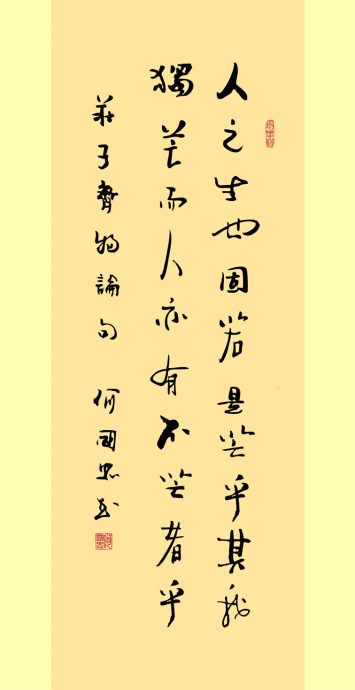 人之生也固若是芒乎其我
獨芒而人亦有不芒者乎
莊子齊物論句 何國忠書